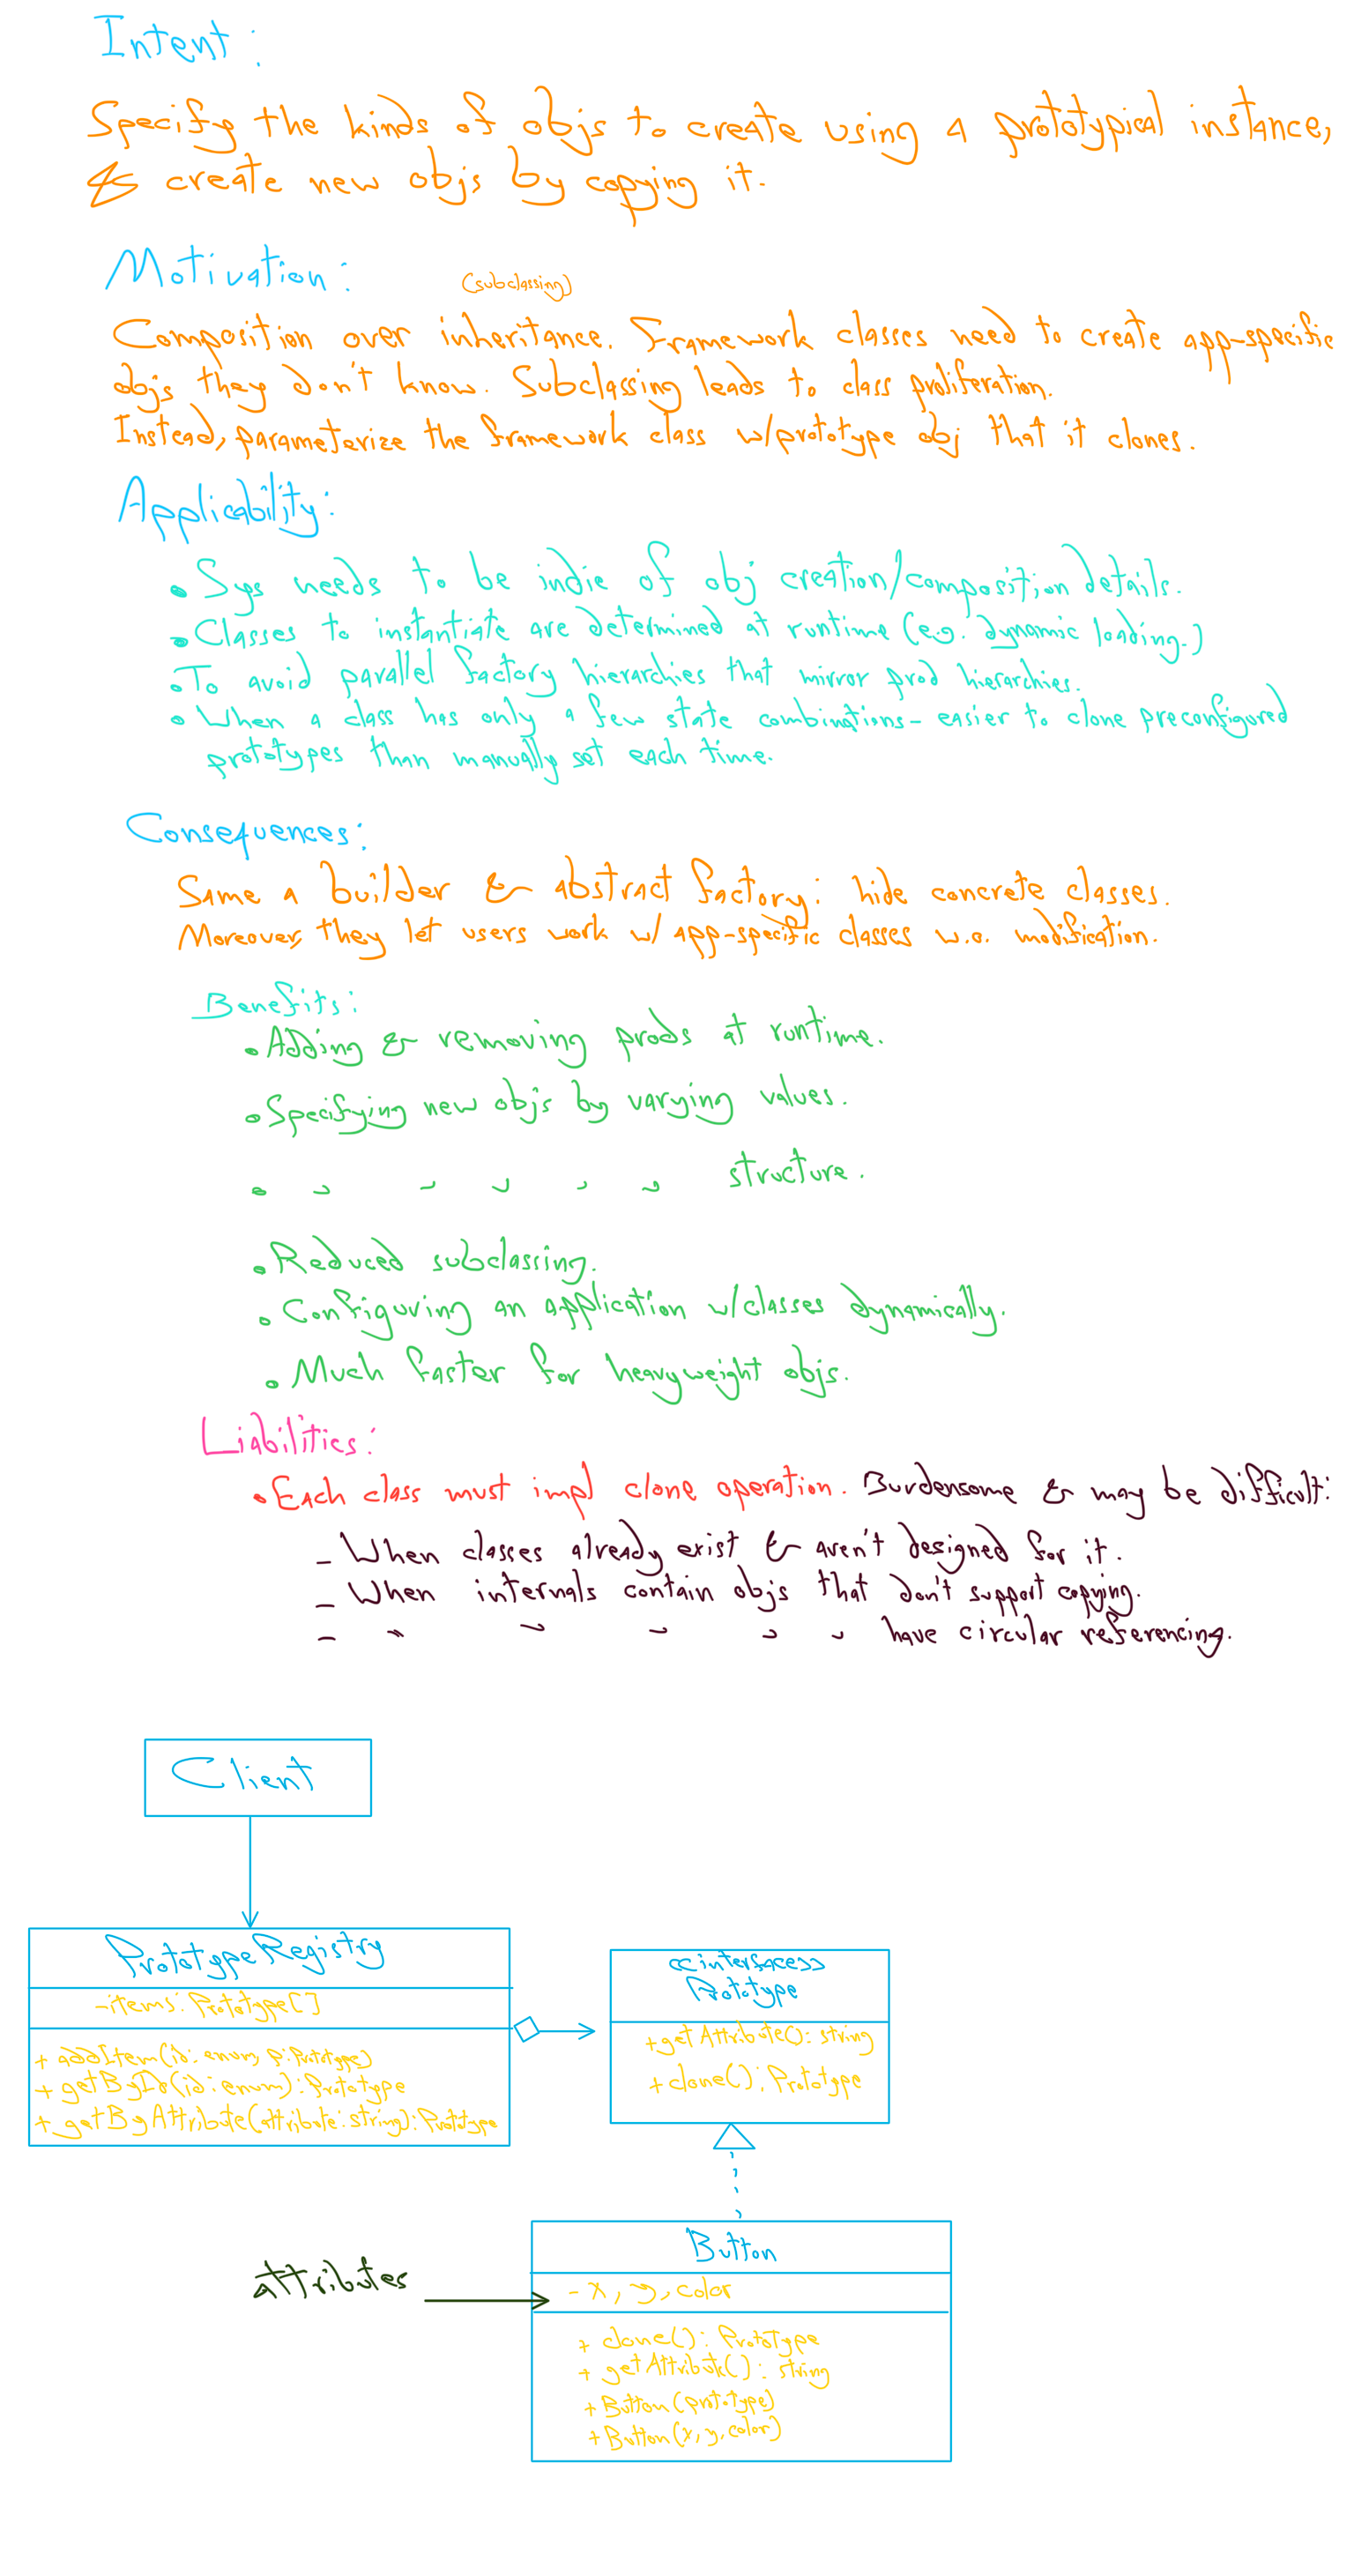 Intent:
Specify the kinds of objs to create using a prototypical instance,
& create new objs by copying it.
Motivation:
(subclassing)
Composition over inheritance. Framework classes need to create app-specific
objs they don't know. Subclassing leads to class proliferation.
Instead, parameterize the framework class w/prototype obj that it clones.
Applicability:
• Sys needs to be indie of obj creation/composition details.
• Classes to instantiate are determined at runtime (e.g. dynamic loading.)
• To avoid parallel factory hierarchies that mirror prod hierarchies.
• When a class has only a few state combinations - easier to clone preconfigured
prototypes than manually set each time.
Consequences:
Same a builder & abstract factory: hide concrete classes.
Moreover, they let users work w/ app-specific classes w.o. modification.
Benefits:
• Adding & removing prods at runtime.
• Specifying new objs by varying values.
• " " " " " structure.
• Reduced subclassing.
• Configuring an application w/classes dynamically.
• Much faster for heavyweight objs.
Liabilities:
• Each class must impl clone operation. Burdensome & may be difficult:
- When classes already exist & aren't designed for it.
- When internals contain objs that don't support copying.
- " " " " " have circular referencing.
Client
PrototypeRegistry
-items: Prototype[]
+ addItem(id: enum, p: Prototype)
+ getById(id: enum): Prototype
+ getByAttribute(attribute: string): Prototype
<<interface>>
Prototype
+getAttribute(): string
+clone(): Prototype
Button
attributes
- x, y, color
+ clone(): Prototype
+ getAttribute(): string
+ Button(prototype)
+ Button(x, y, color)